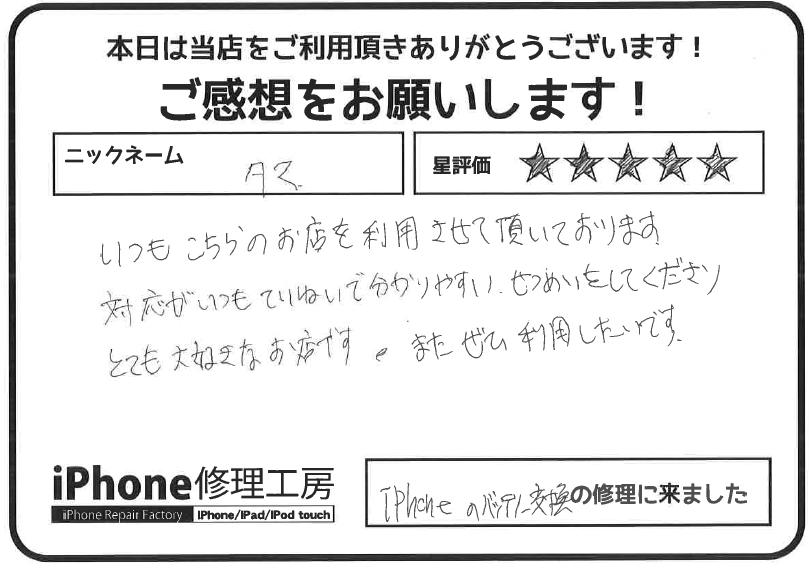 本日は当店をご利用頂きありがとうございます！
ご感想をお願いします！
ニックネーム
星評価 ★★★★★
いつもこちらのお店を利用させて頂いております
対応がいつもていねいで分かりやすい、せつめいをしてくださり
とても大好きなお店です。またぜひ利用したいです。
iPhone修理工房
iPhone Repair Factory iPhone/iPad/iPod touch
iPhoneのバッテリー交換の修理に来ました